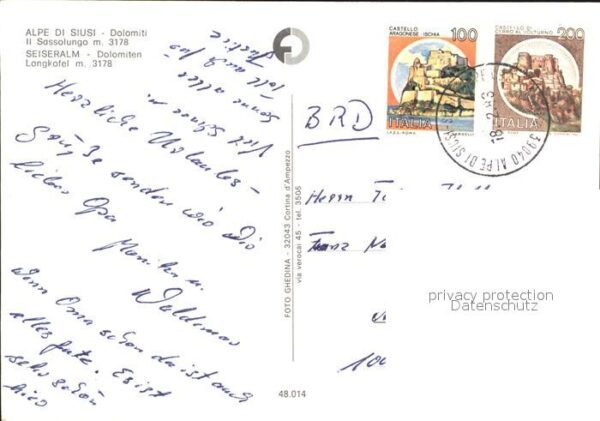 ALPE DI SIUSI - Dolomiti
Il Sassolungo m. 3178
SEISERALM - Dolomiten
Longkofel m. 3178
Herzliche Urlaubs-
Grüße senden wir Dir
lieber Opa Monika u.
Waldemar
Wenn Oma schon da ist auch
alles gute. Es ist
sehr schön
hier
viel Schnee u.
Sonne alles
toll
FOTO GHEDINA - 32043 Cortina d'Ampezzo
via verocai 45 - tel. 3505
48.014
CASTELLO
ARAGONESE ISCHIA
100
ITALIA
I.P.Z.S. ROMA
CASTELLO DI
CERRO AL VOLTURNO
200
ITALIA
39040 ALPE DI SIUSI
BRD
Herrn
Franz
privacy protection
Datenschutz